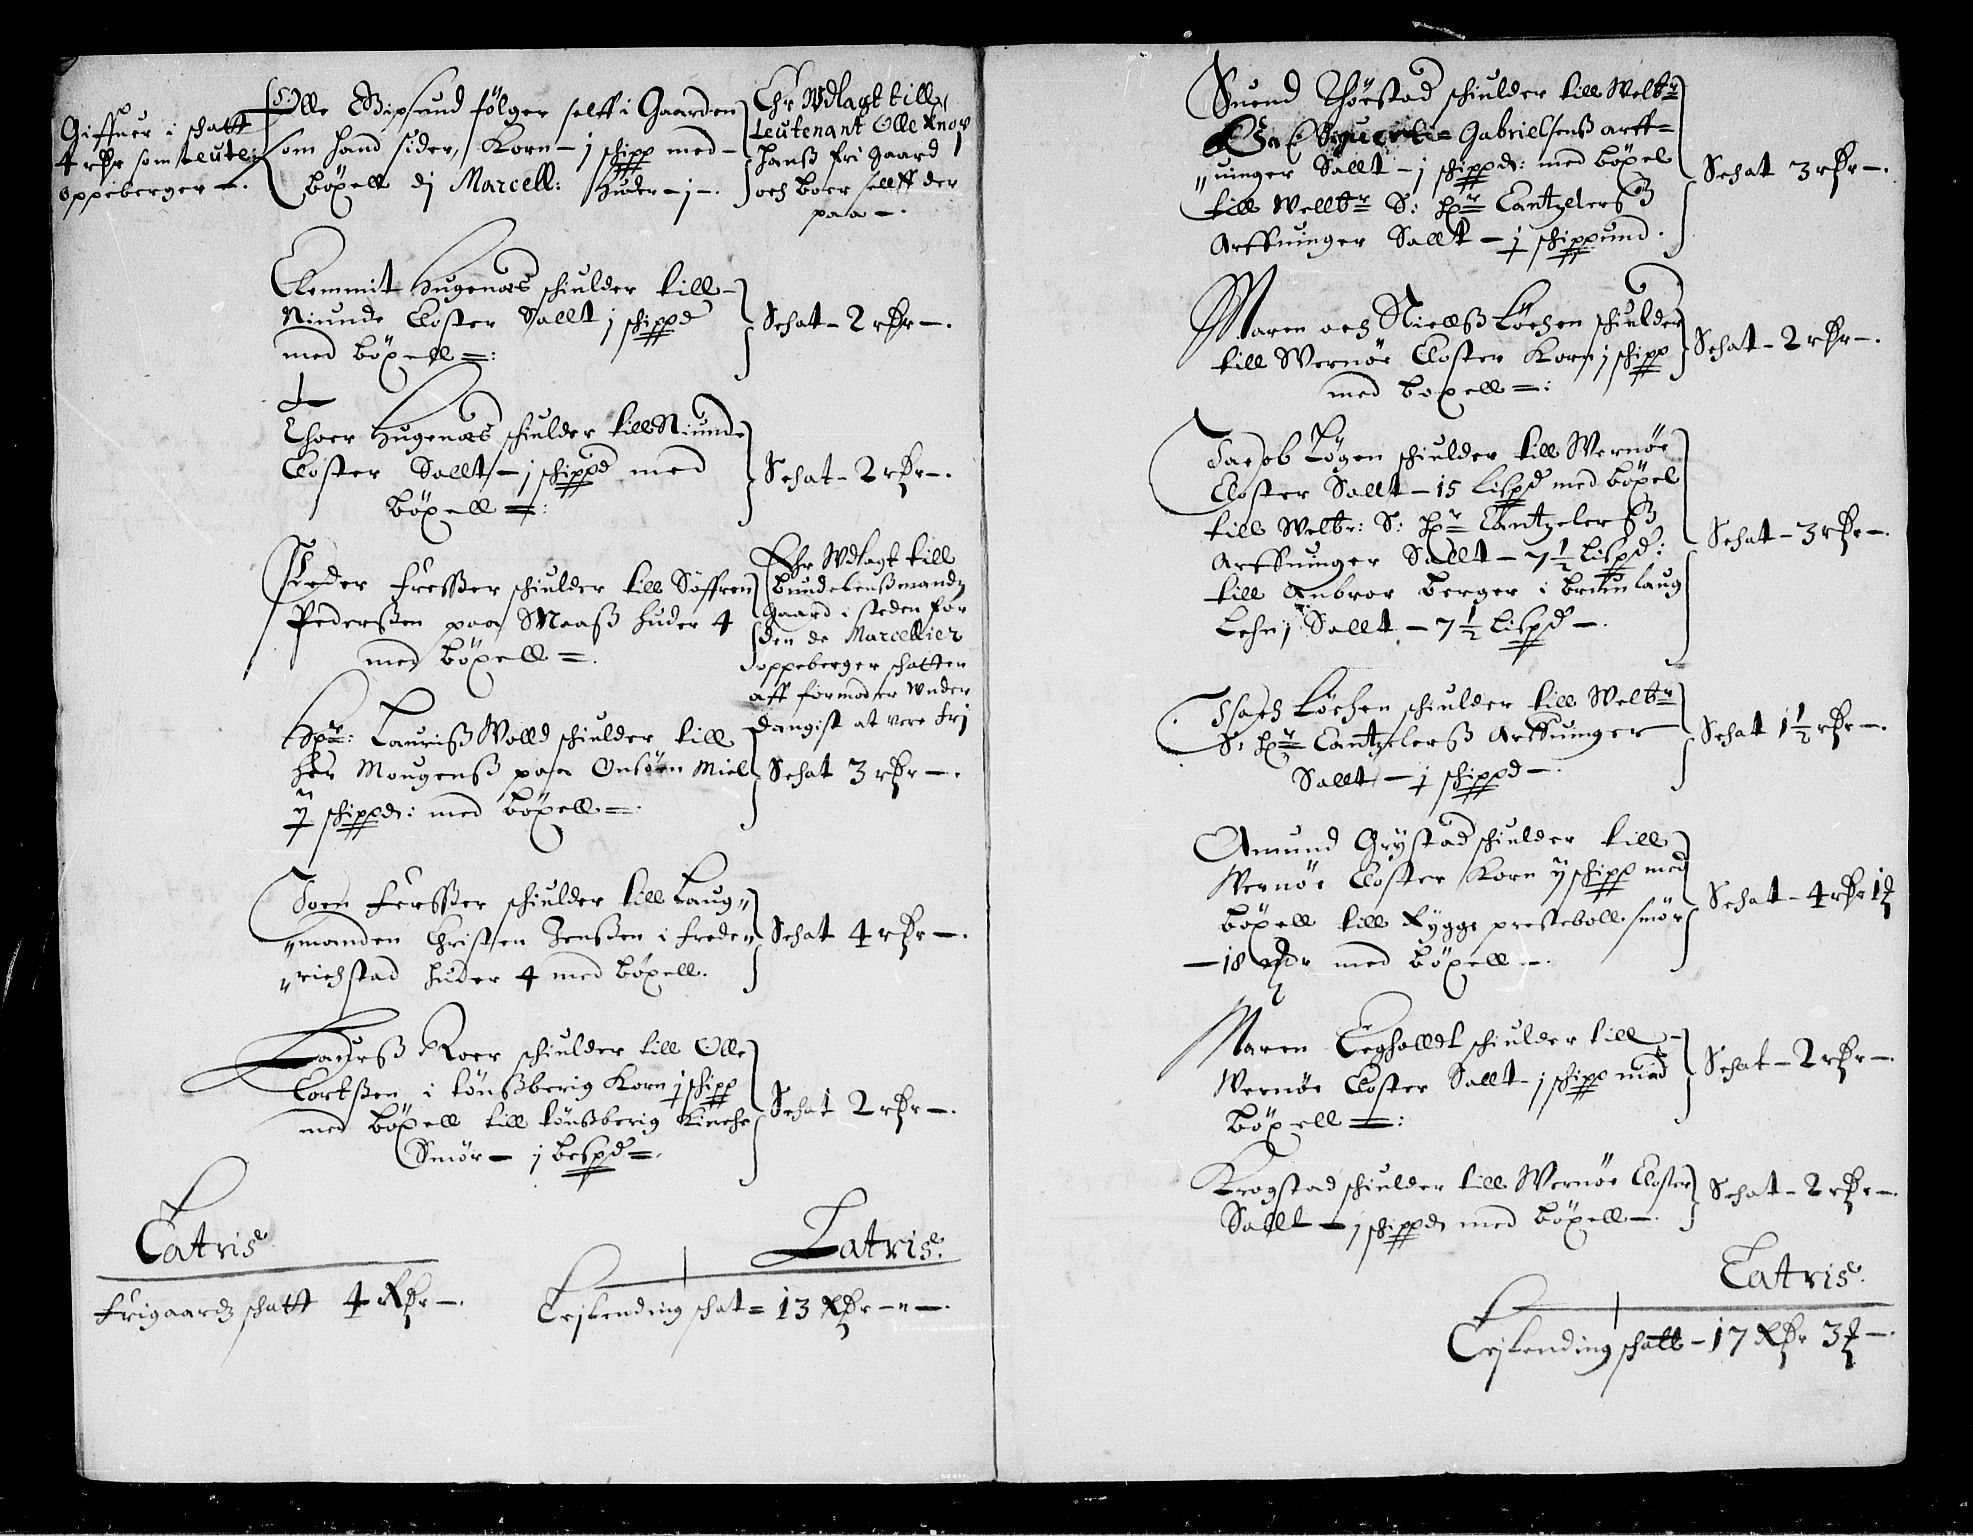 Giffuer i schatt
4 rdr som leute:
oppeberger —.
Olle Gipsund følger selff i Gaarden
som hand sider, Korn — j schipp med —
böxell dj Marcell: huder — j —.
Ehr Wdlagt till
Leutenant Olle Knor
hanß fri gaard
och boer sellff der
paa —.
Clemmit Hugenæs schiulder till —
Niunde Closter Sallt j schippd
med böxell =:
Schat — 2 rdr —.
Thoer Hugenæs schiulder till Niunde
Closter Sallt — j schippd med
böxell =:
Schat — 2 rdr —.
Peder fresßer schiulder till Söffren
Pederßen paa Maaß huder 4
med böxell =.
Ehr Wdlagt till
bundelenßmandz
gaard i steden for
den de Marcellier
oppeberger schatten
aff formoder Wnder
dangist at vere frj
Hr: Lauriß Wolld schiulder till
her Mougenß paa Onsöen Miel
ij schippd: med böxell =.
Schat 3 rdr —.
Joen fersßer schiulder till Laug"
"manden Christen Jenßen i frede"
"richstad huder 4 med böxell.
Schat 4 rdr —.
Laurß Roer schiulder till Olle
Cortßen i tönßberig Korn j schipp
med böxell till tönßberig Kirche
Smör — j bespd =.
Schat 2 rdr —.
Latris.
frigaardz schatt 4 Rdr —.
Latris.
Leylending schat = 13 Rdr — " —.
Suend Thöestad schiulder till Welbr
Gabrielsenß arff=
"uinger Sallt — j schippd: med böxel
till Wellbr S: Hr Cantzelerß
Arffuinger Sallt — j schippund.
Schat 3 rdr —.
Maren och Nielß Löchen schiulder
till Wernöe Closter Korn j schipp
med boxell =:
Schat — 2 rdr —.
Jacob Lögen schiulder till Wernöe
Closter Sallt — 15 Lispd med böxel
till Welbr: S: Hr Cantzelerß
Arffuinger Sallt — 7½ Lispd:
till Anbror berger i brunlaug
Lehn Sallt — 7½ Lispd —.
Schat — 3 rdr —.
Isach Löchen schiulder till Welbr
S: Hr Cantzelerß Arffuinger
Sallt — j schippd —.
Schat 1½ rdr —.
Amund Grystad schiulder till
Wernöe Closter Korn ij schipp med
böxell till Rygge prestebolle smör
— 18 mrk med böxell —.
Schat — 4 rdr 1 ß
Maren Eegholldt schiulder till —
Wernöe Closter Sallt — j schipp med
böxell =:
Schat — 2 rdr —.
Krogstad schiulder till Wernöe Closter
Sallt — j schippd med böxell —.
Schat — 2 rdr —.
Latris.
Leylending schatt — 17 Rdr 3 ß —.